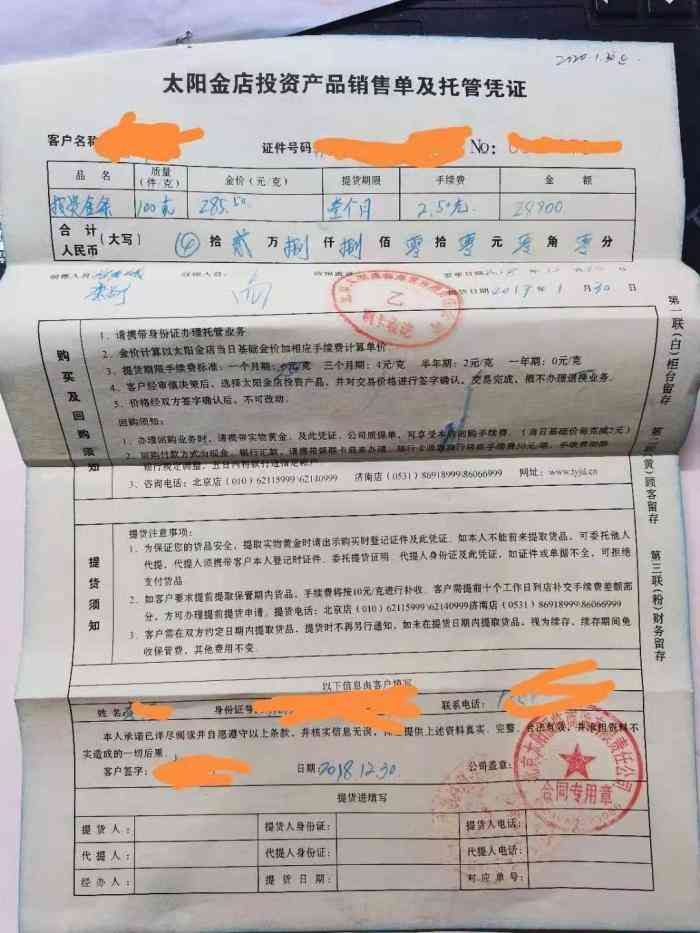 2020.1.30
太阳金店投资产品销售单及托管凭证
客户名称 证件号码 No:
品名 质量(件/克) 金价(元/克) 提货期限 手续费 金额
投资金条 100克 285.50 壹个月 2.50元 28800
合计人民币 (大写) 拾 贰 万 捌 仟 捌 佰 零 拾 零 元 零 角 零 分
提货日期 2019年1月30日
购买及回购须知
1. 请携带身份证办理托管业务
2. 金价计算以太阳金店当日基础金价加相应手续费计算单价。
3. 提货期限手续费标准:一个月期: 元/克 三个月期:4元/克 半年期:2元/克 一年期:0元/克
4. 客户经审慎决策后,选择太阳金店投资产品,并对交易价格进行签字确认。交易完成,概不办理退换业务。
5. 价格经双方签字确认后,不可改动。
回购须知:
1. 办理回购业务时,请携带实物黄金、及此凭证、公司质保单,可享受本 回购手续费。(当日基础价每克减2元)
3. 咨询电话:北京店(010)62118999\62140999 济南店(0531)86918999\86066999 网址:www.tyjd.cn
提货须知
提货注意事项:
1. 为保证您的货品安全,提取实物黄金时请出示购买时登记证件及此凭证。如本人不能前来提取货品,可委托他人
代提,代提人须携带客户本人登记时证件、委托提货证明、代提人身份证及此凭证,如证件或单据不全,可拒绝
支付货品
2. 如客户要求提前提取保管期内货品,手续费将按10元/克进行补收。客户需提前十个工作日到店补交手续费差额部
分,方可办理提前提货申请。提货电话:北京店(010)62115999\62140999济南店(0531)86918999\86066999
3. 客户需在双方约定日期内提取货品,提货时不再另行通知,如未在提货日期内提取货品,视为续存,续存期间免
收保管费,其他费用不变.
第一联(白)柜台留存 第二联(黄)顾客留存 第三联(粉)财务留存
以下信息由客户填写
姓名 身份证号 联系电话:
本人承诺已详尽阅读并自愿遵守以上条款,并核实信息无误, 提供上述资料真实、完整、合法有效,并承担资料不
实造成的一切后果。
客户签字: 日期:2018.12.30 公司盖章:
合同专用章
提货进填写
提货人: 提货人身份证: 提货人电话:
代提人: 代提人身份证: 代提人电话:
经办人: 提货日期: 对应单号: